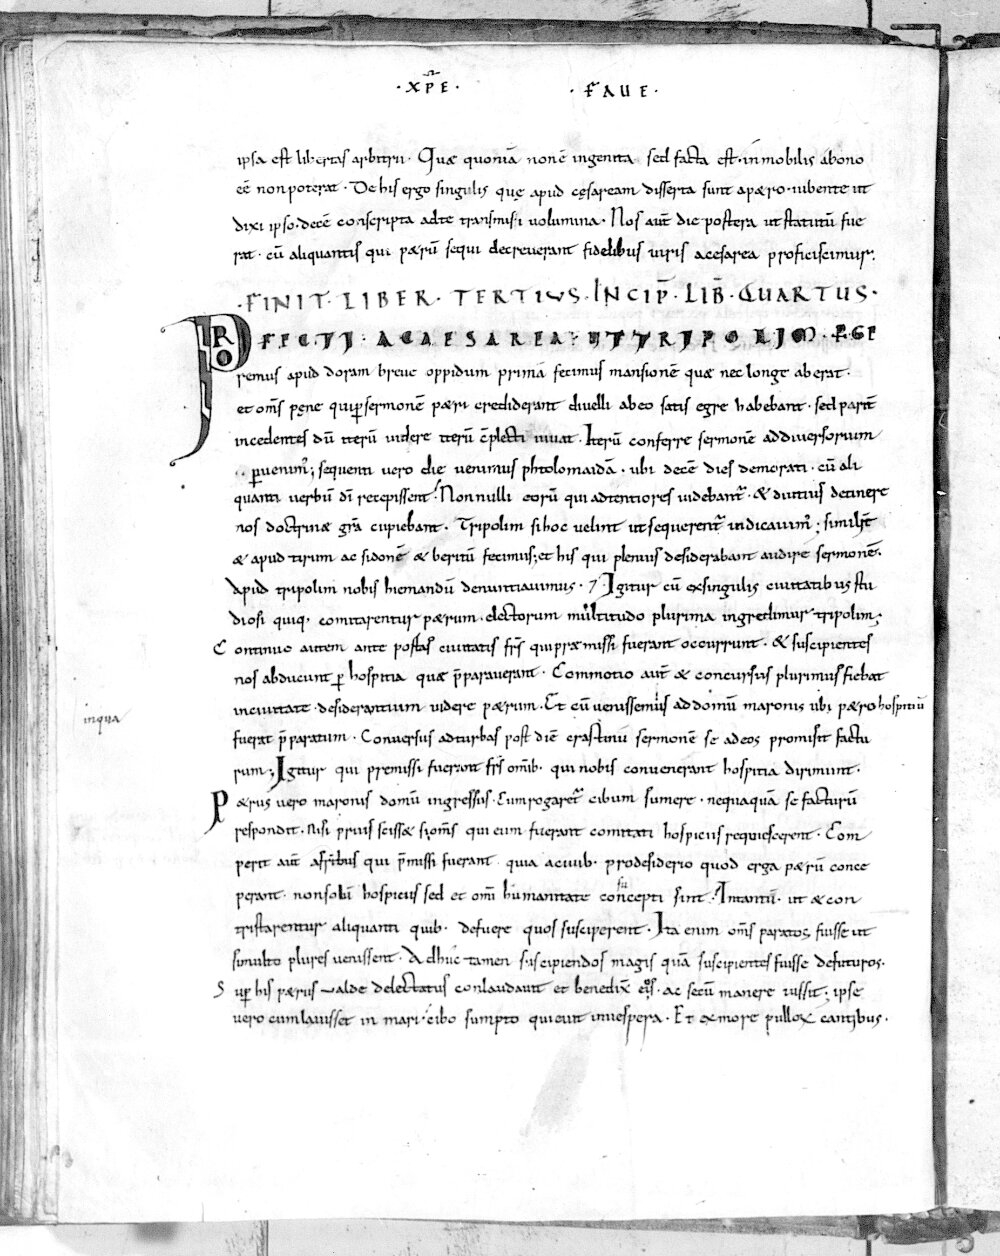 · XP̅E · · FAUE ·
ipsa est libertas arbitrii · Quæ quoniā non ē ingenita sed facta est · inmobilis abono
eē̄ non poterat · De his ergo singulis quę apud cęsaream disserta sunt apæro · iubente ut
dixi ipso · decē conscripta adte transmisi uolumina · Nos aut̄ die postera ut statutū fue
rat · cū aliquantis qui pærū sequi decreuerant fidelibus uiris acesarea proficiscimur ·
· FINIT · LIBER · TERTIUS · INCIP̄ · LIB̄ · QUARTUS ·
PROFECTI · ACAESAREA · UTTRIPOLIM · PGE
remus apud doram breue oppidum primā fecimus mansionē quæ nec longe aberat ·
et om̄s pęne qui ꝑ sermonē pæri crediderant diuelli abeo satis egre habebant · sed parit̄
incedentes dū iterū uidere iterū c̄plecti iuuat · Iterū conferre sermonē addiuersorium
ꝑuenim᷒; sequenti uero die uenimus phtolomaidā · ubi decē dies demorati · cū ali
quanti uerbū dī recepissent · Nonnulli eorū qui adtentiores uidebant᷒ · & diutius detinere
nos doctrinæ grā cupiebant · Tripolim si hoc uelint ut sequerent᷒ indicauim᷒; similit̄
& apud tirum ac sidonē & beritū fecimus; et his qui plenius desiderabant audire sermonē ·
Apud tripolim nobis hiemandū denuntiauimus · 7 Igitur cū exsingulis ciuitatibus stu
diosi quiq · comitarentur pærum · electorum multitudo plurima ingredimur tripolim;
Continuo autem ante portas ciuitatis fr̄s qui præmissi fuerant occurrunt · & suscipientes
nos abducunt ꝑ hospitia quæ p̄parauerant · Commotio aut̄ & concursus plurimus fiebat
inciuitate · desiderantium uidere pærum · Et cū uenissemus addomū maronis ubi pæro hospitiū
inqua
fuerat p̄paratum · Conuersus adturbas post diē crastinū sermonē se adeos promisit factu
rum; Igitur qui premissi fuerant fr̄s omīb · qui nobis conuenerant hospitia dirimunt ·
Pærus uero maronis domū ingressus · Cum rogaret᷒ cibum sumere · nequaquā se facturū
respondit · nisi prius scissæ si om̄s qui eum fuerant comitati hospiciis requiescerent · Com
perit aut̄ afrībus qui p̄missi fuerant quia aciuib · prodesiderio quod erga pærū conce
perant · nonsolū hospiciis sed et om̄i humanitate concepti sint · Intantū · ut & con
su
tristarentur aliquanti quib · defuere quos susciperent · Ita enim om̄s paratos fuisse ut
simulto plures uenissent · Adhuc tamen suscipiendos magis quā suscipientes fuisse defuturos ·
Suꝑ his pærus ualde delectatus conlaudauit et benedix̄ eos · ac secū manere iussit; ipse
uero cum lauisset in mari cibo sumpto quieuit inuespera · Et exmore pulloꝝ cantibus ·